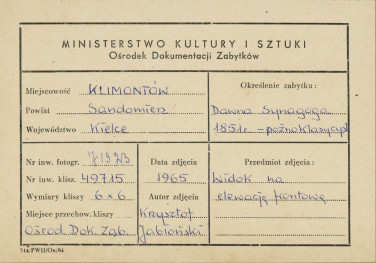 MINISTERSTWO KULTURY I SZTUKI
Ośrodek Dokumentacji Zabytków
Miejscowość KLIMONTÓW
Powiat Sandomierz
Województwo Kielce
Określenie zabytku:
Dawna synagoga
1851r. – późnoklasycyst
Nr inw. fotogr.
Nr inw. klisz. 49715
Wymiary kliszy 6 x 6
Miejsce przechow. kliszy
Ośrod. Dok. Zab.
Data zdjęcia
1965
Autor zdjęcia
Krzysztof
Jabłoński
Przedmiot zdjęcia:
Widok na
elewację frontową